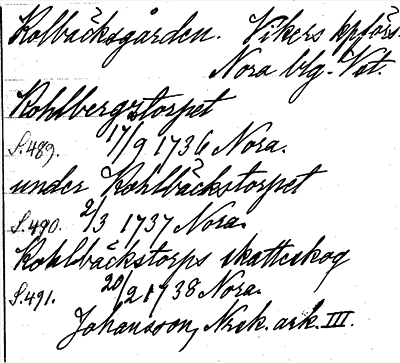 Kolbäcksgården. Vikers kpförs.
Nora blg. Vst.
Kohlbergstorpet
S.489. 17/9 1736 Nora.
under Kohlbäckstorpet
S.490. 2/3 1737 Nora.
Kohlbäckstorps skatteskog
S.491. 20/2 1738 Nora.
Johansson, Nrk. ark. III.